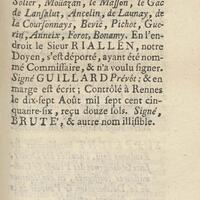 Solier, Mouazan, le Masson, le Gac
de Lansalut, Ancelin, de Launay, de
la Coursonnays, Bevic, Pichot, Gue-
rin, Anneix, Forot, Bonamy. En l'en-
droit le Sieur RIALLEN, notre
Doyen, s'est déporté, ayant été nom-
mé Commissaire, & n'a voulu signer.
Signé GUILLARD Prévôt; & en
marge est écrit; Contrôlé à Rennes
le dix-sept Août mil sept cent cin-
quante-six, reçu douze sols. Signé,
BRUTÉ, & autre nom illisible.